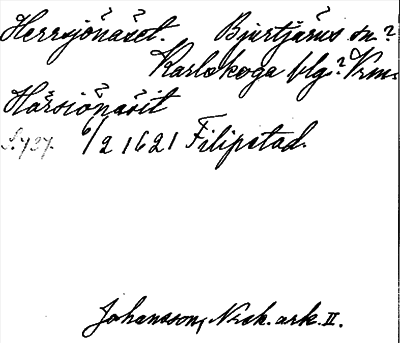 Herrsjönäset. Bjurtjärns sn?
Karlskoga blg? Vrm.
Härsiönäsit
S. 737. 6/2 1621 Filipstad.
Johansson, Nrck. ark. II.